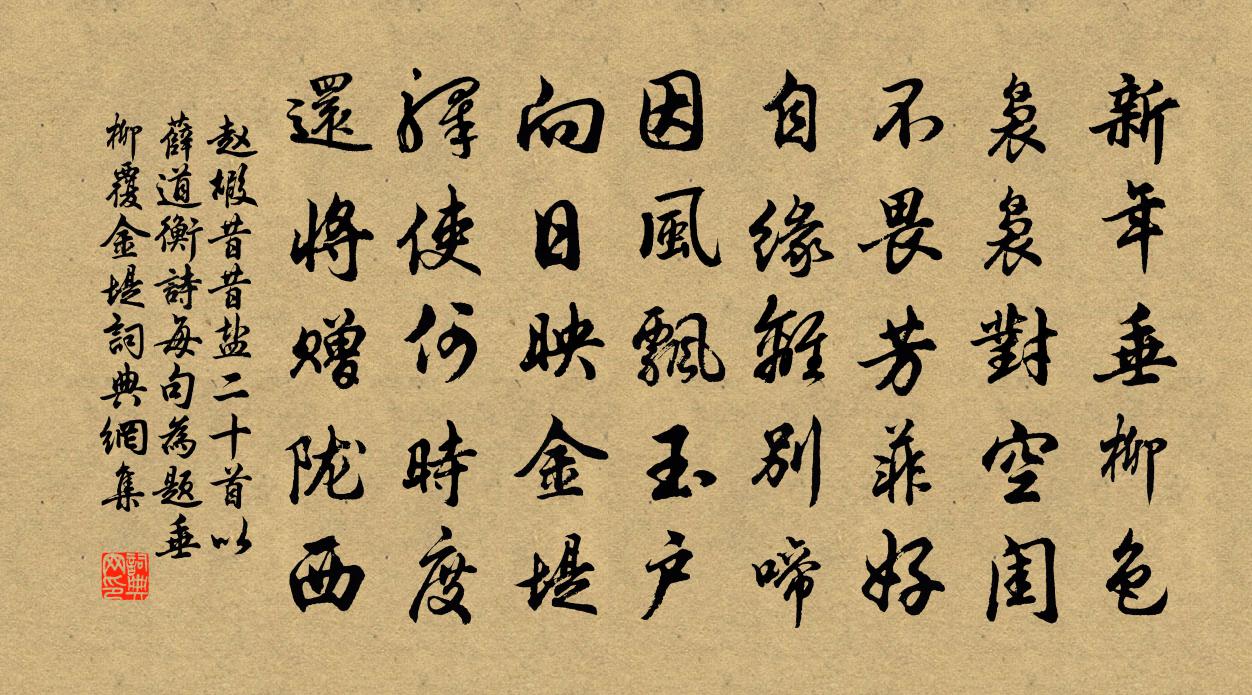 新年垂柳色
袅袅對空閨
不畏芳菲好
自緣離別啼
因風飄玉户
向日映金堤
驛使何時度
還將贈陇西
赵嘏昔昔盐二十首以
薛道衡詩每句為题垂
柳覆金堤詞典網集
詞典网印